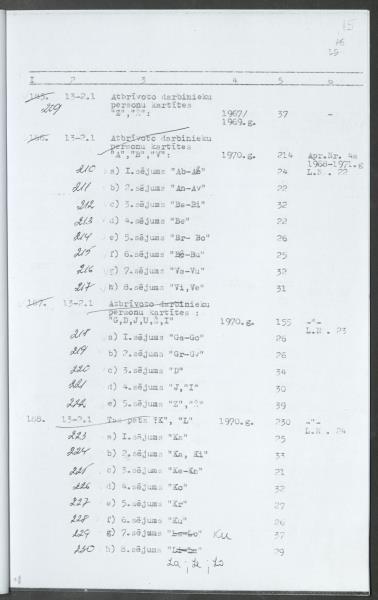 15
16
15
1 2 3 4 5 6
185. 13-2.1 Atbrīvoto darbinieku
personu kartītes
209 "Z","Ž": 1967/ 37 -
1969.g.
186. 13-2.1 Atbrīvoto darbinieku
personu kartītes
"A","B","V": 1970.g. 214 Apr.Nr. 4a
1968-1971.g
210 a) 1.sējums "Ab-" 24 L.N. 22
211 b) 2.sējums "An-Av" 22
212 c) 3.sējums "Ba-Bi" 32
213 d) 4.sējums "Be" 22
214 e) 5.sējums "Br-Bo" 26
215 f) 6.sējums "-Bu" 25
216 g) 7.sējums "Va-Vu" 32
217 h) 8.sējums "Vi,Ve" 31
187. 13-2.1 Atbrīvoto darbinieku
personu kartītes :
"G,D,J,U,Z,I" 1970.g. 155 -"-
218 a) 1.sējums "Ga-Go" 26 L.N. 23
219 b) 2.sējums "Gr-Gv" 26
220 c) 3.sējums "D" 34
221 d) 4.sējums "J,"I" 30
222 e) 5.sējums "Z", 39
188. 13-2.1 Tas pats "K", "L" 1970.g. 230 -"-
223 a) 1.sējums "Ka" 25 L.N. 24
224 b) 2.sējums "Ka, Ki" 33
225 c) 3.sējums "Ke-Kn" 21
226 d) 4.sējums "Ko" 32
227 e) 5.sējums "Kr" 27
228 f) 6.sējums "Ku" 26
229 g) 7.sējums Ku 37
230 h) 8.sējums 29
La ; Le ; Lo